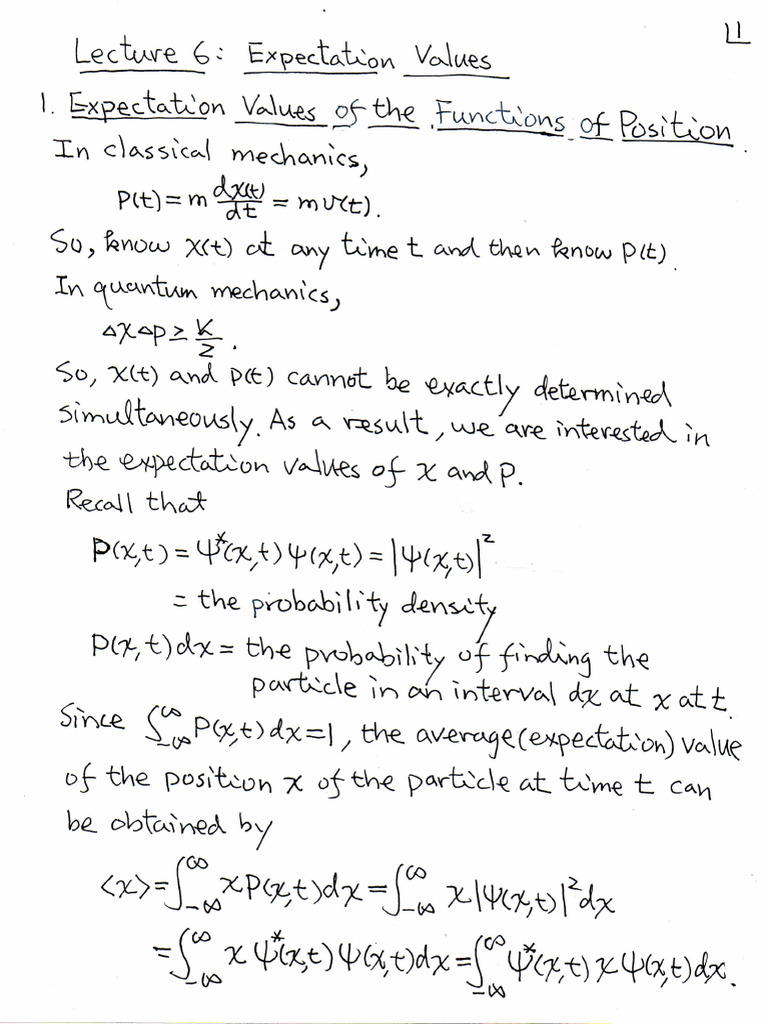 1
Lecture 6: Expectation Values
1. Expectation Values of the Functions of Position
In classical mechanics,
P(t) = m dx(t)/dt = mv(t).
So, know x(t) at any time t and then know P(t).
In quantum mechanics,
Δx Δp ≥ ħ/2.
So, x(t) and P(t) cannot be exactly determined
simultaneously. As a result, we are interested in
the expectation values of x and P.
Recall that
P(x,t) = Ψ*(x,t) Ψ(x,t) = |Ψ(x,t)|²
= the probability density
P(x,t) dx = the probability of finding the
particle in an interval dx at x at t.
Since ∫_{-∞}^{∞} P(x,t) dx = 1, the average (expectation) value
of the position x of the particle at time t can
be obtained by
⟨x⟩ = ∫_{-∞}^{∞} x P(x,t) dx = ∫_{-∞}^{∞} x |Ψ(x,t)|² dx
= ∫_{-∞}^{∞} x Ψ*(x,t) Ψ(x,t) dx = ∫_{-∞}^{∞} Ψ*(x,t) x Ψ(x,t) dx.